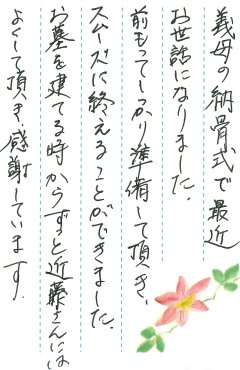 義母の納骨式で最近
お世話になりました。
前もってしっかり準備して頂き、
スムーズに終えることができました。
お墓を建てる時からずっと近藤さんには
よくして頂き、感謝しています。